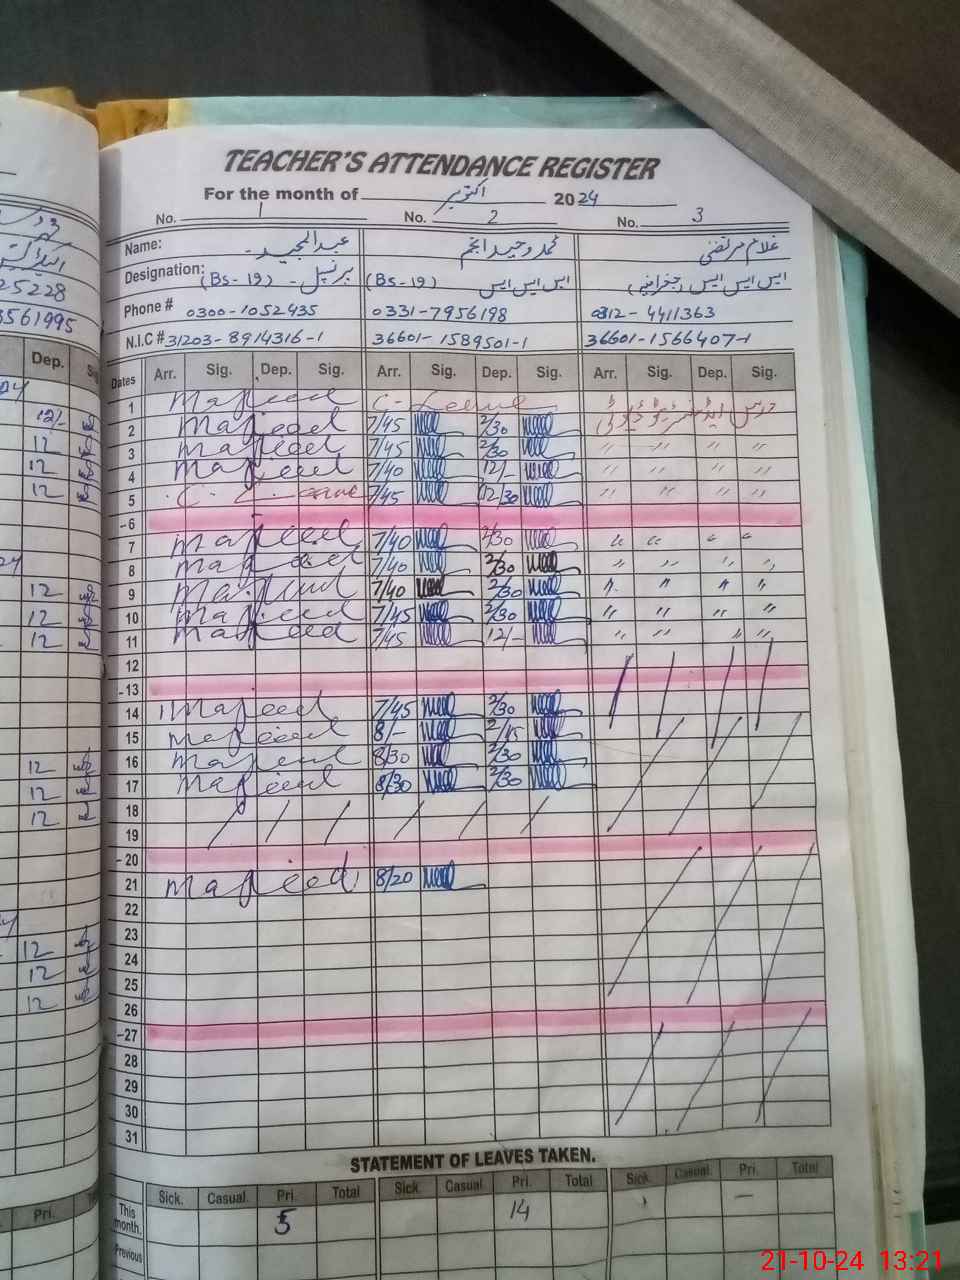 TEACHER'S ATTENDANCE REGISTER
For the month of اکتوبر 2024
No. 1 No. 2 No. 3
Name: عبدالمجید محمد وحید انجم غلام مرتضیٰ
Designation: پرنسپل (BS-19) ایس ایس ایس (BS-19) ایس ایس ایس (جغرافیہ)
Phone # 0300-1052435 0331-7956198 0312-4411363
N.I.C # 31203-8914316-1 36601-1589501-1 36601-1566407-1
Dates Arr. Sig. Dep. Sig. Arr. Sig. Dep. Sig. Arr. Sig. Dep. Sig.
1 Majeed C-Leave
2 Majeed 7/45 2/30
3 Majeed 7/45 2/30 " " " "
4 Majeed 7/40 12/- " " " "
5 C. Leave 7/45 12/30 " " " "
-6
7 Majeed 7/40 2/30 " " " "
8 Majeed 7/40 2/30 " " " "
9 Majeed 7/40 2/30 " " " "
10 Majeed 7/45 2/30 " " " "
11 Majeed 7/45 12/- " " " "
12
-13
14 Majeed 7/45 2/30
15 Majeed 8/- 2/45
16 Majeed 8/30 2/30
17 Majeed 8/30 2/30
18
19
-20
21 Majeed 8/20
22
23
24
25
26
-27
28
29
30
31
STATEMENT OF LEAVES TAKEN.
Sick. Casual. Pri. Total Sick. Casual Pri. Total Sick. Casual. Pri. Total
This month. 5 14 –
Previous
Dep.
12/-
12
12
12
12
12
12
12
12
12
12
12
12
Pri.
25228
3561995
21-10-24 13:21